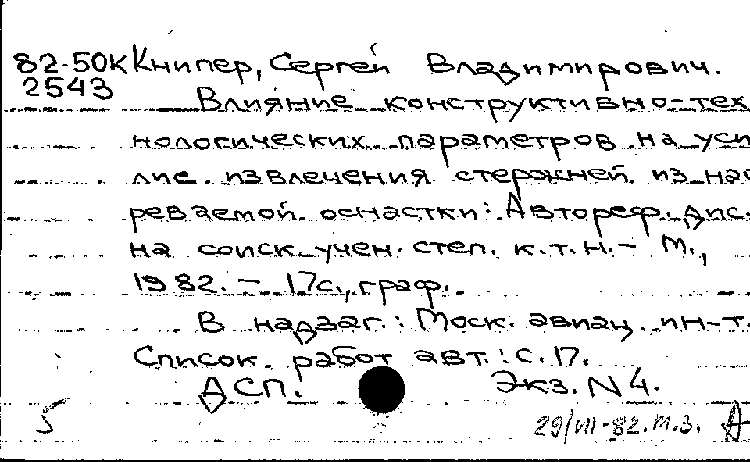 82-50К Книпер, Сергей Владимирович.
2543
Влияние конструктивно-тех
нологических параметров на уси
лие извлечения стержней из наг
реваемой оснастки: Автореф. дис.
на соиск. учен. степ. к.т.н. - М.,
1982. - 17с., граф.
В надзаг.: Моск. авиац. ин-т.
Список работ авт.: с. 17.
ДСП. Экз. N 4.
5
29/VII-82. м.з. А